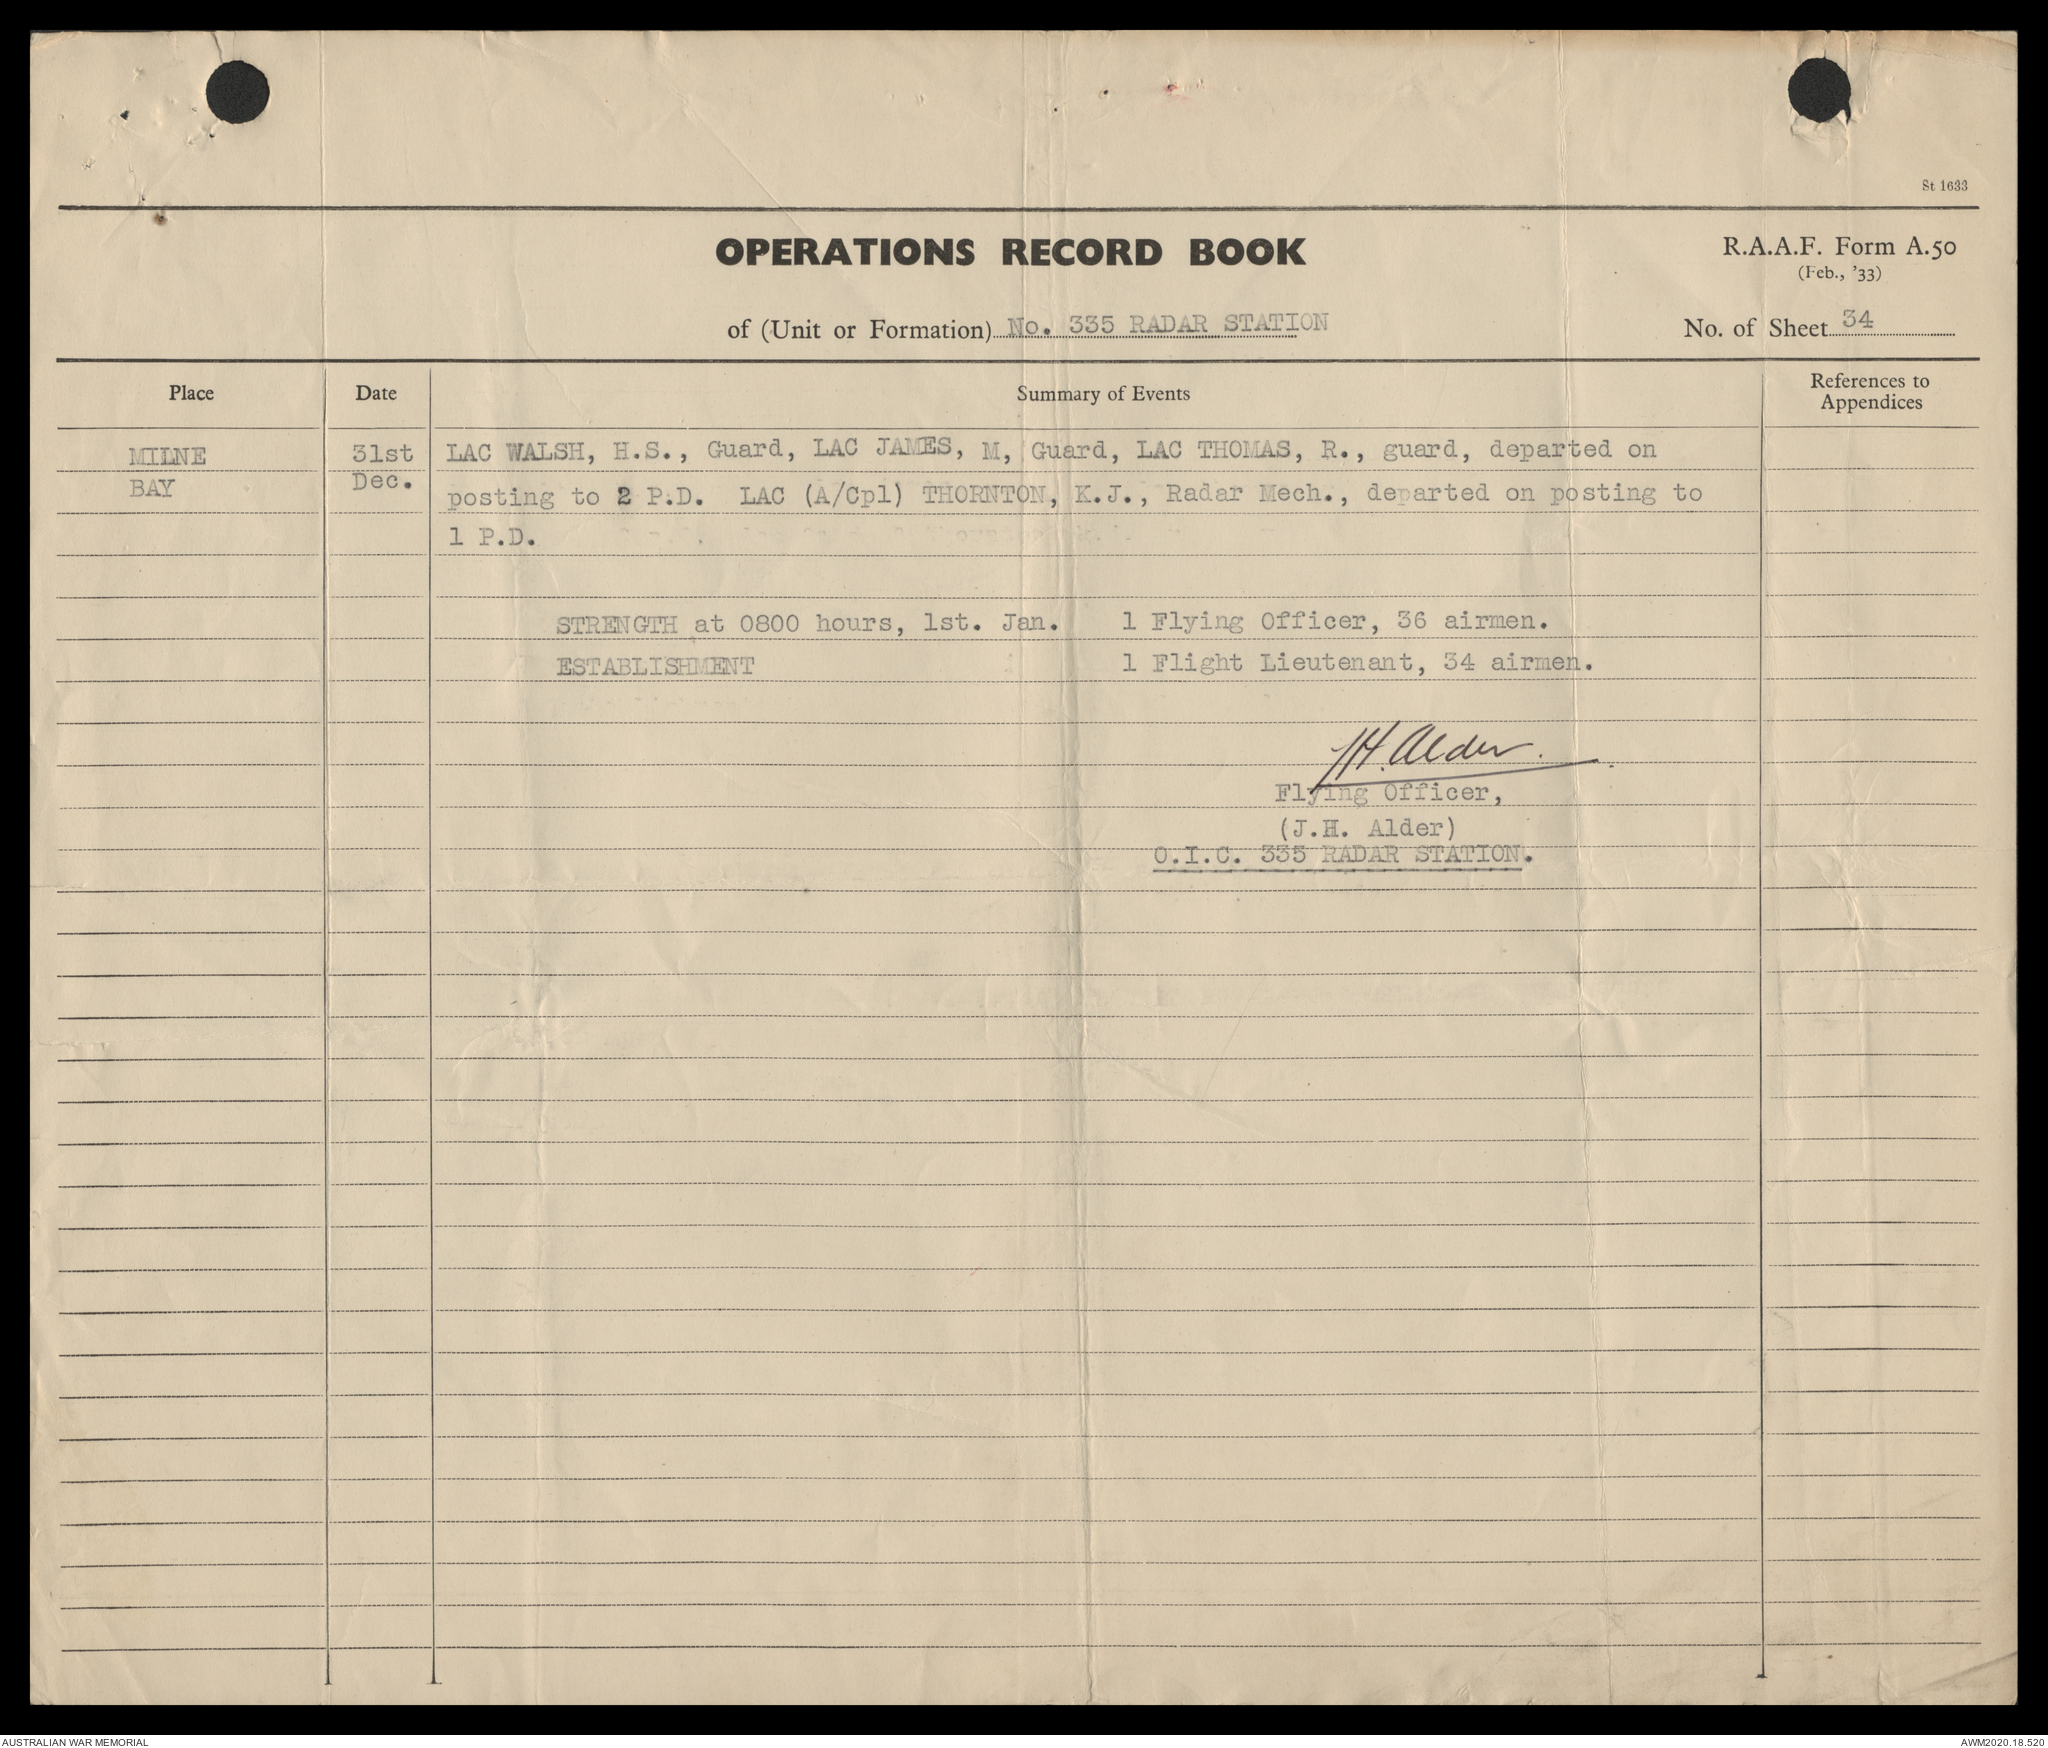 St 1633
OPERATIONS RECORD BOOK
R.A.A.F. Form A.50
(Feb., '33)
of (Unit or Formation) No. 335 RADAR STATION
No. of Sheet 34
Place
Date
Summary of Events
References to
Appendices
MILNE
BAY
31st
Dec.
LAC WALSH, H.S., Guard, LAC JAMES, M, Guard, LAC THOMAS, R., guard, departed on
posting to 2 P.D. LAC (A/Cpl) THORNTON, K.J., Radar Mech., departed on posting to
1 P.D.
STRENGTH at 0800 hours, 1st. Jan. 1 Flying Officer, 36 airmen.
ESTABLISHMENT 1 Flight Lieutenant, 34 airmen.
JH. Alder.
Flying Officer,
(J.H. Alder)
O.I.C. 335 RADAR STATION.
AUSTRALIAN WAR MEMORIAL
AWM2020.18.520